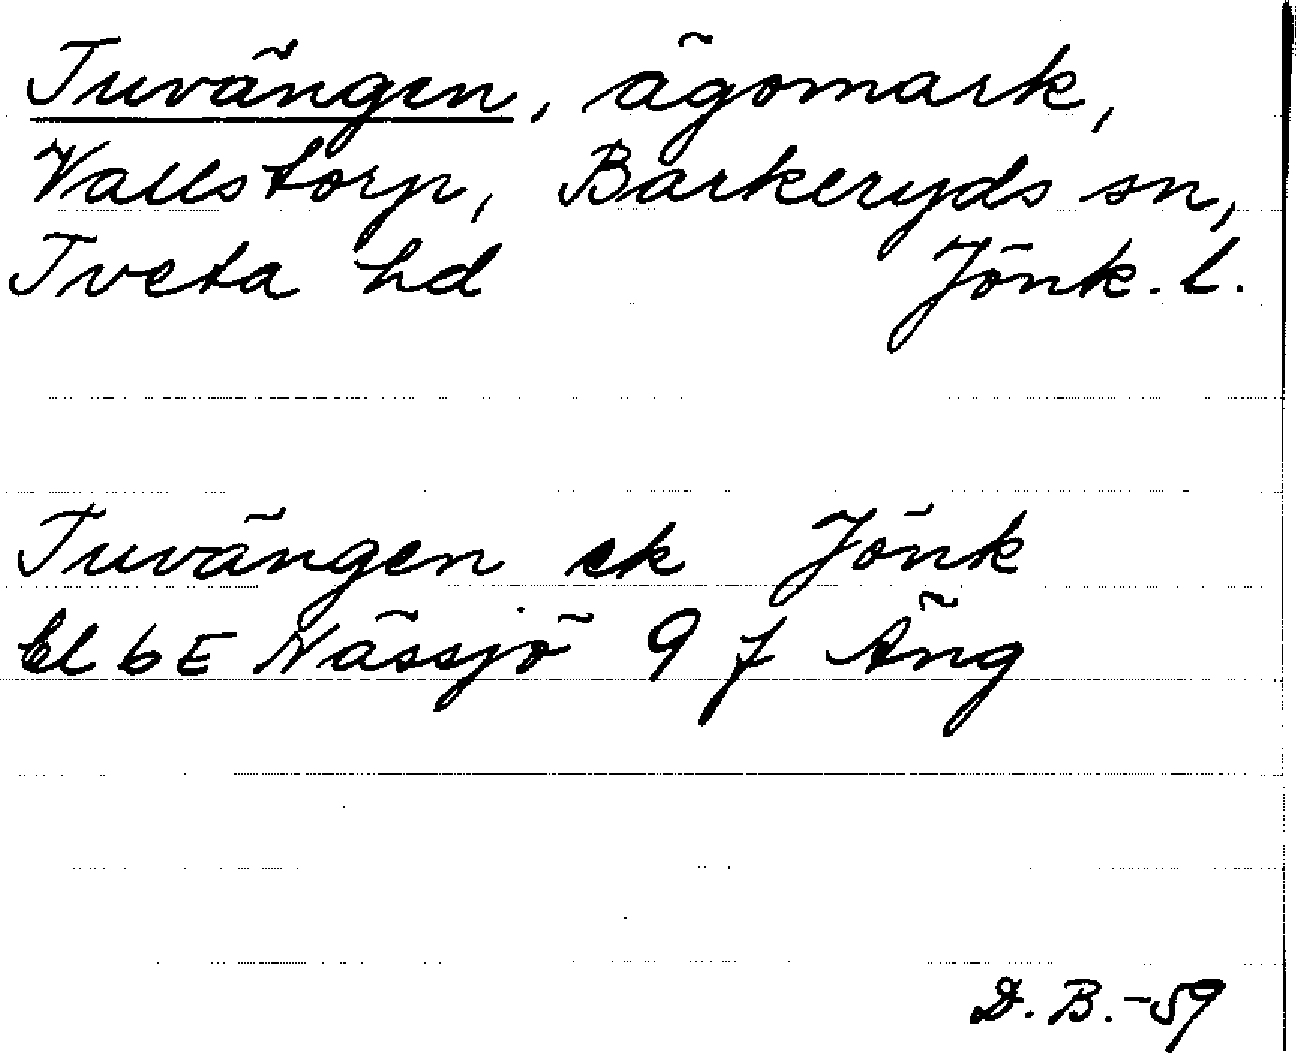 Tuvängen, ägomark,
Vallstorp, Barkeryds sn,
Tveta hd Jönk. l.
Tuvängen ek Jönk
bl 6E Nässjö 9 f Äng
D. B. -59